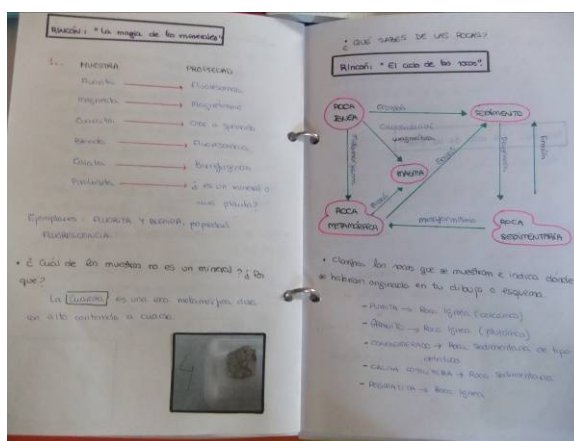 RINCÓN: "La magia de los minerales"
1.. MUESTRA PROPIEDAD
Fluorita Fluorescencia
Magnetita Magnetismo
Cuarcita
Fluorescencia
Calcita Birrefringencia
Pirolusita ¿ es un mineral o
una planta?
Ejemplares: FLUORITA Y
propiedad
FLUORESCENCIA.
• ¿ Cuál de las muestras no es un mineral? ¿ Por
que?
La Cuarcita es una roca metamórfica
con alto contenido
cuarzo
4
• ¿ QUÉ SABES DE LAS ROCAS?
Rincón: "El ciclo de las rocas".
ROCA
ÍGNEA
Erosión
SEDIMENTO
MAGMA
Erosión
ROCA
METAMÓRFICA
metamorfismo
ROCA
SEDIMENTARIA
• Clasifica las rocas que se muestran e indica dónde
se habrían originado en tu dibujo o esquema.
→ Roca Ígnea (volcánica)
- GRANITO → Roca Ígnea (plutónica)
- CONGLOMERADO → Roca Sedimentaria de tipo
detrítico
- CALIZA → Roca Sedimentaria
- PEGMATITA → Roca Ígnea